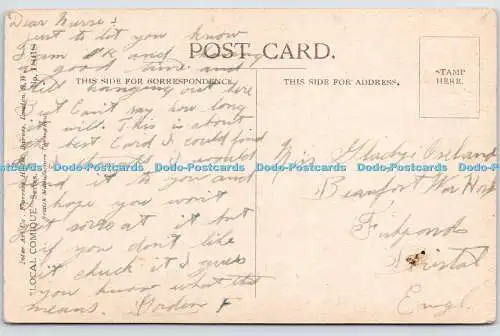 Dear Nurse:
Just to let you know
I am OK and having
a good time and
still hanging out here
But Can't say how long
it will. This is about
the best Card I could find
I would
send it to you and
hope you won't
get sore at it but
if you don't like
it chuck it I guess
you know what this
means. Gordon F
POST CARD.
THIS SIDE FOR CORRESPONDENCE.
THIS SIDE FOR ADDRESS.
STAMP
HERE.
Miss Gladys
Beaufort War Hosp
Fishponds
Bristol
Engl.
"LOCAL COMIQUE" Series No. 1868
Inter-Art Co., Florence House, Barnes, London, S.W.
British Manufacture Throughout
Dodo-Postcards Dodo-Postcards Dodo-Postcards Dodo-Postcards Dodo-Postcards Dodo-Postcards